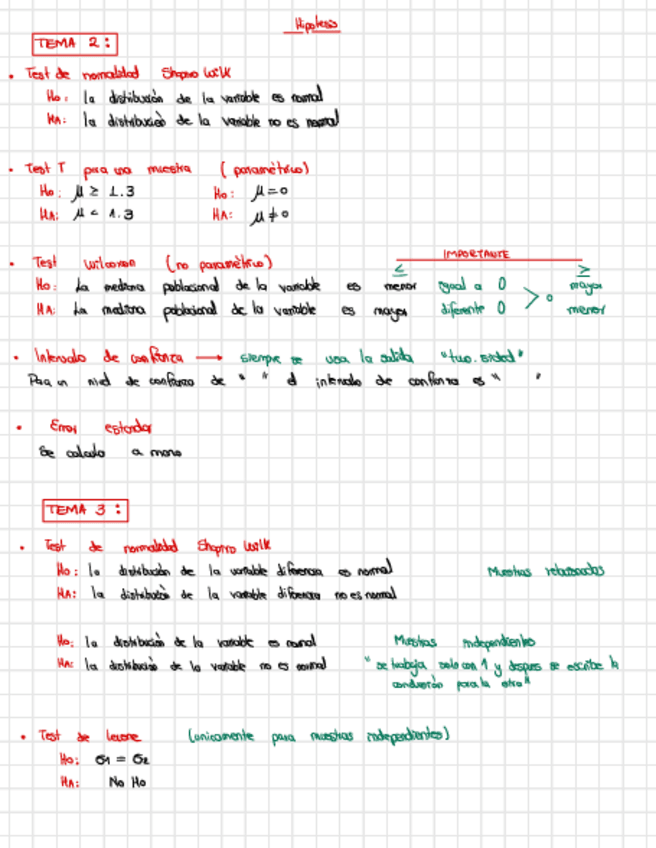 Hipotesis
TEMA 2:
• Test de normalidad Shapiro Wilk
Ho: la distribución de la variable es normal
HA: la distribución de la variable no es normal
• Test T para una muestra (paramétrico)
Ho: μ ≥ 1.3 Ho: μ=0
HA: μ < 1.3 HA: μ≠0
IMPORTANTE
• Test wilcoxon (no paramétrico) ≤ ≥
Ho: La mediana poblacional de la variable es menor igual a 0 mayor
HA: La mediana poblacional de la variable es mayor diferente 0 > 0 menor
• Intervalo de confianza → siempre se usa la salida "two.sided"
Para un nivel de confianza de " " el intervalo de confianza es " "
• Error estandar
Se calcula a mano
TEMA 3:
• Test de normalidad Shapiro Wilk
Ho: la distribución de la variable diferencia es normal Muestras relacionadas
HA: la distribución de la variable diferencia no es normal
Ho: la distribución de la variable es normal Muestras independientes
HA: la distribución de la variable no es normal "se trabaja solo con 1 y despues se escribe la
conclusión para la otra"
• Test de levene (unicamente para muestras independientes)
Ho: σ1 = σ2
HA: No Ho